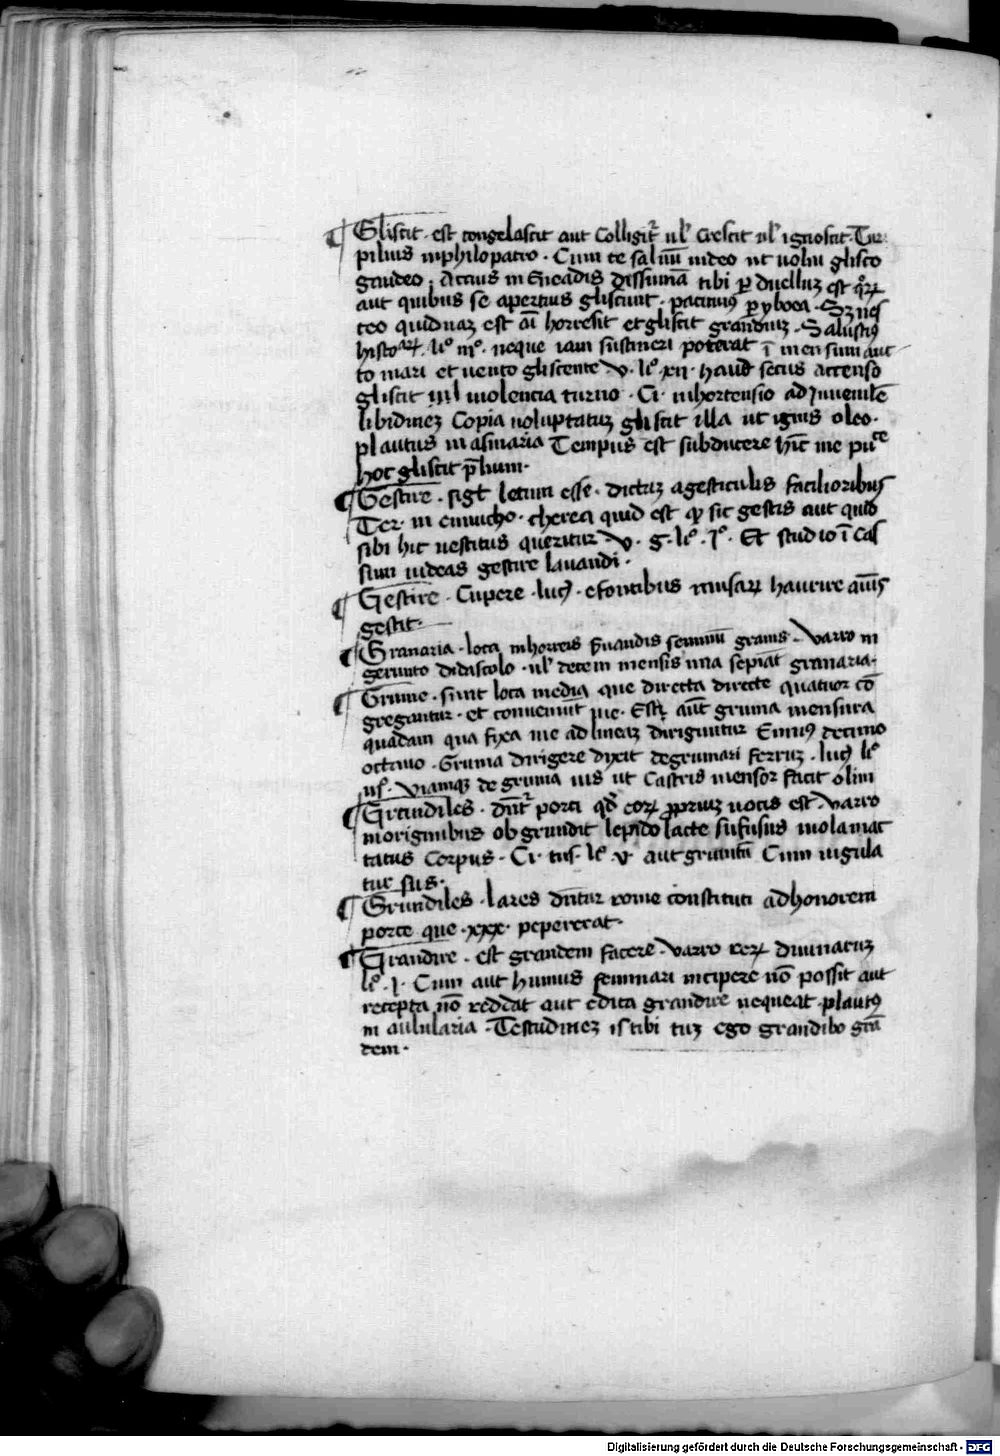 ¶ Gliscit · est congelascit aut Colligit᷑ ul' Crescit ul' ignoscit · Tur
pilius inphilopatro · Cum te saluũ uideo ut uolui glisco
gaudeo · Accius in Eneadis dissimũ tibi ꝑ duelluꝫ est
aut quibus se apertius gliscunt · pacuuiꝰ ꝑ yboea · Sꝫ
teo quidnaꝫ est aĩ horresit et gliscit grandiuꝫ · Salustiꝰ
histoarꝝ · liº mº · neque iam sustineri poterat ĩ mensum auc
to mari et uento gliscente V · liº · xii · haud secus accenso
gliscit uiolencia turno · Ci · inhortensio ad Juuenilẽ
libidineꝫ Copia uoluptatuꝫ gliscit illa ut ignis oleo ·
plautus in asinaria Tempus est subducere hĩc me
hoc gliscit p̃lium ·
¶ Gestire · sigt̃ letum esse · dictuꝫ agesticulis facilioribus
Ter · in eunucho · cherea quid est ꝙ sic gestis aut quid
sibi hic uestitus queritur V · g · liº · Jº · Et studio ĩ Cas
sum uideas gestire lauandi ·
¶ Gestire · Cupere · lucꝰ · efontibus musarꝝ haurire
gestit ·
¶ Granaria · loca inhorreis s̃uandis seminũ granis · Varro in
geronto didascolo · ul' decem mensis una sepiat granaria ·
¶ Grume · sunt loca media que directa directe quatuor cõ
gregantur · et conueniũt uie · aũt gruma mensura
quadam qua fixa uie ad lineaꝫ diriguntur Enniꝰ decimo
octauo · Gruma dirigere dixit degrumari ferruꝫ · lucꝰ liº
Viamqꝫ degruma uis ut Castris mensor facit olim
¶ Grundiles · dũt᷑ porci qd̃ eorꝝ ꝓpriuꝫ uocis est · Varro
inoriginibus ob grundit lepido lacte sufusus mola mac
tatus Corpus · Ci · tus · liº V · aut grunitũ Cum iugula
tur sus ·
¶ Grundiles · lares dñtur rome constituti ad honorem
porce que · xxx · pepererat ·
¶ Grandire · est grandem facere · Varro rerꝝ diuinaruꝫ
liº · J · Cum aut humus seminari incipere nõ possit aut
recepta nõ reddat aut edita grandire nequeat · plautꝰ
in aulularia · Testudineꝫ istibi tuꝫ ego grandibo grã
dem ·
Digitalisierung gefördert durch die Deutsche Forschungsgemeinschaft - DFG